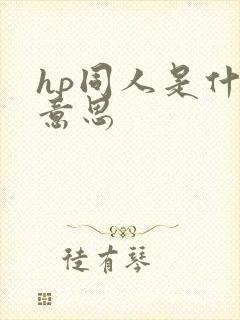 hp同人是什
意思
徒有琴